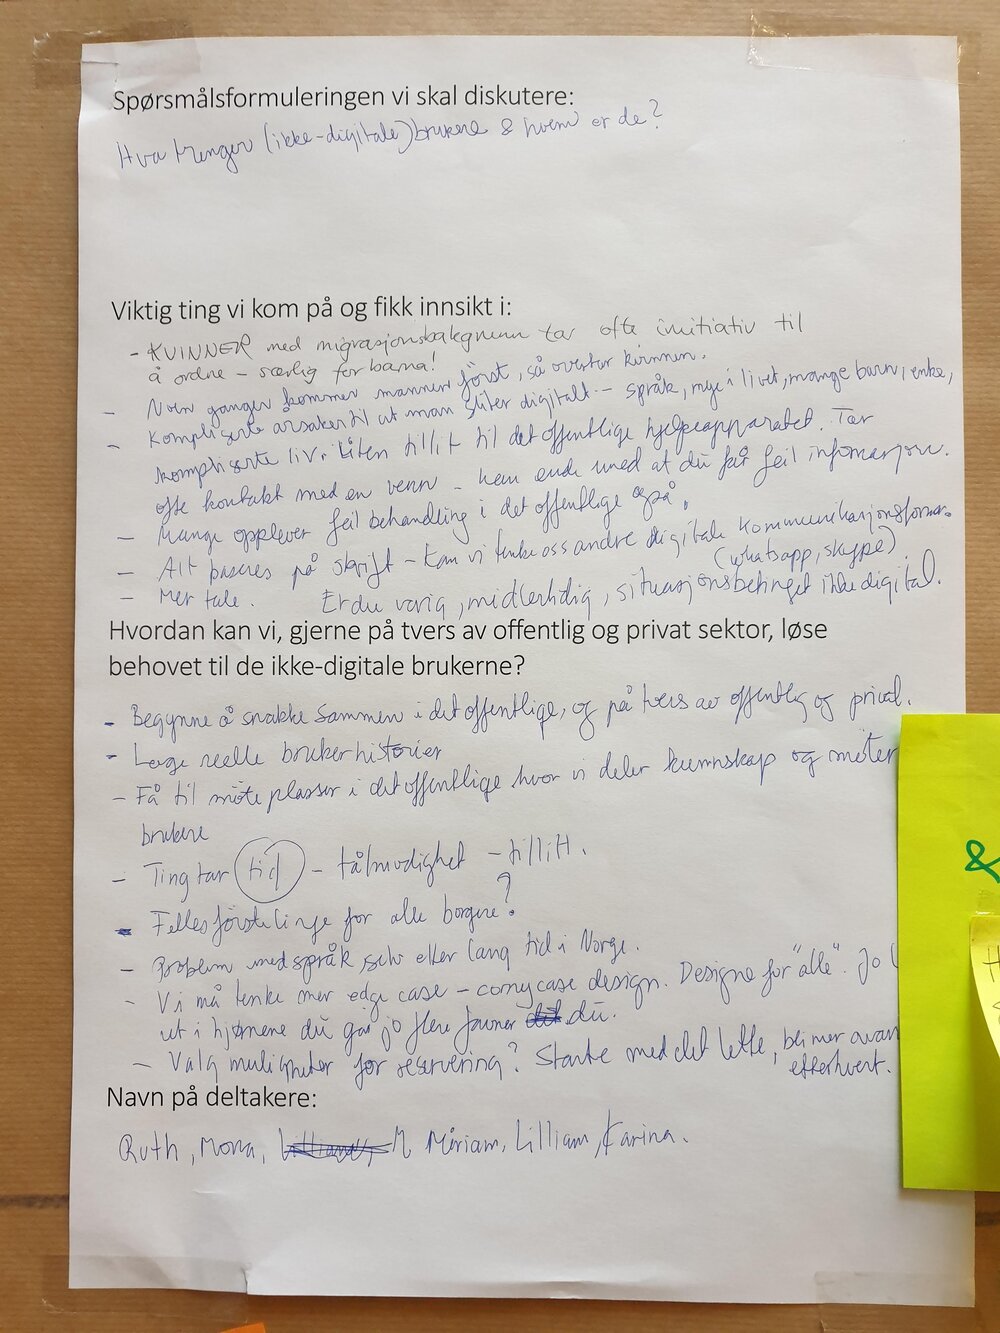 Spørsmålsformuleringen vi skal diskutere:
Hva trenger (ikke-digitale) brukere & hvem er de?
Viktig ting vi kom på og fikk innsikt i:
- KVINNER med migrasjonsbakgrunn tar ofte initiativ til
å ordne - særlig for barna!
- Noen ganger kommer mannen først, så overtar kvinnen.
- Kompliserte årsaker til at man sliter digitalt - språk, mye i livet, mange barn, enke,
kompliserte liv. Liten tillit til det offentlige hjelpeapparatet. Tar
ofte kontakt med en venn - kan ende med at du får feil informasjon.
- Mange opplever feil behandling i det offentlige også.
- Alt baseres på skrift - Kan vi tenke oss andre digitale kommunikasjonsformer.
(whatsapp, skype)
- Mer tale. Er du varig, midlertidig, situasjonsbetinget ikke digital.
Hvordan kan vi, gjerne på tvers av offentlig og privat sektor, løse
behovet til de ikke-digitale brukerne?
- Begynne å snakke sammen i det offentlige, og på tvers av offentlig og privat.
- Lage reelle brukerhistorier
- Få til møteplasser i det offentlige hvor vi deler kunnskap og møter
brukere
- Ting tar tid - tålmodighet - tillitt.
- Felles førstelinje for alle borgere?
- Problem med språk selv etter lang tid i Norge.
- Vi må tenke mer edge case - cornycase design. Designe for "alle". Jo
ut i hjørnene du går jo flere favner du.
- Valg muligheter for reservering? Starte med det lette, bli mer avan
etterhvert.
Navn på deltakere:
Ruth, Mona, M Miriam, Lilliam, Karina.
&
H